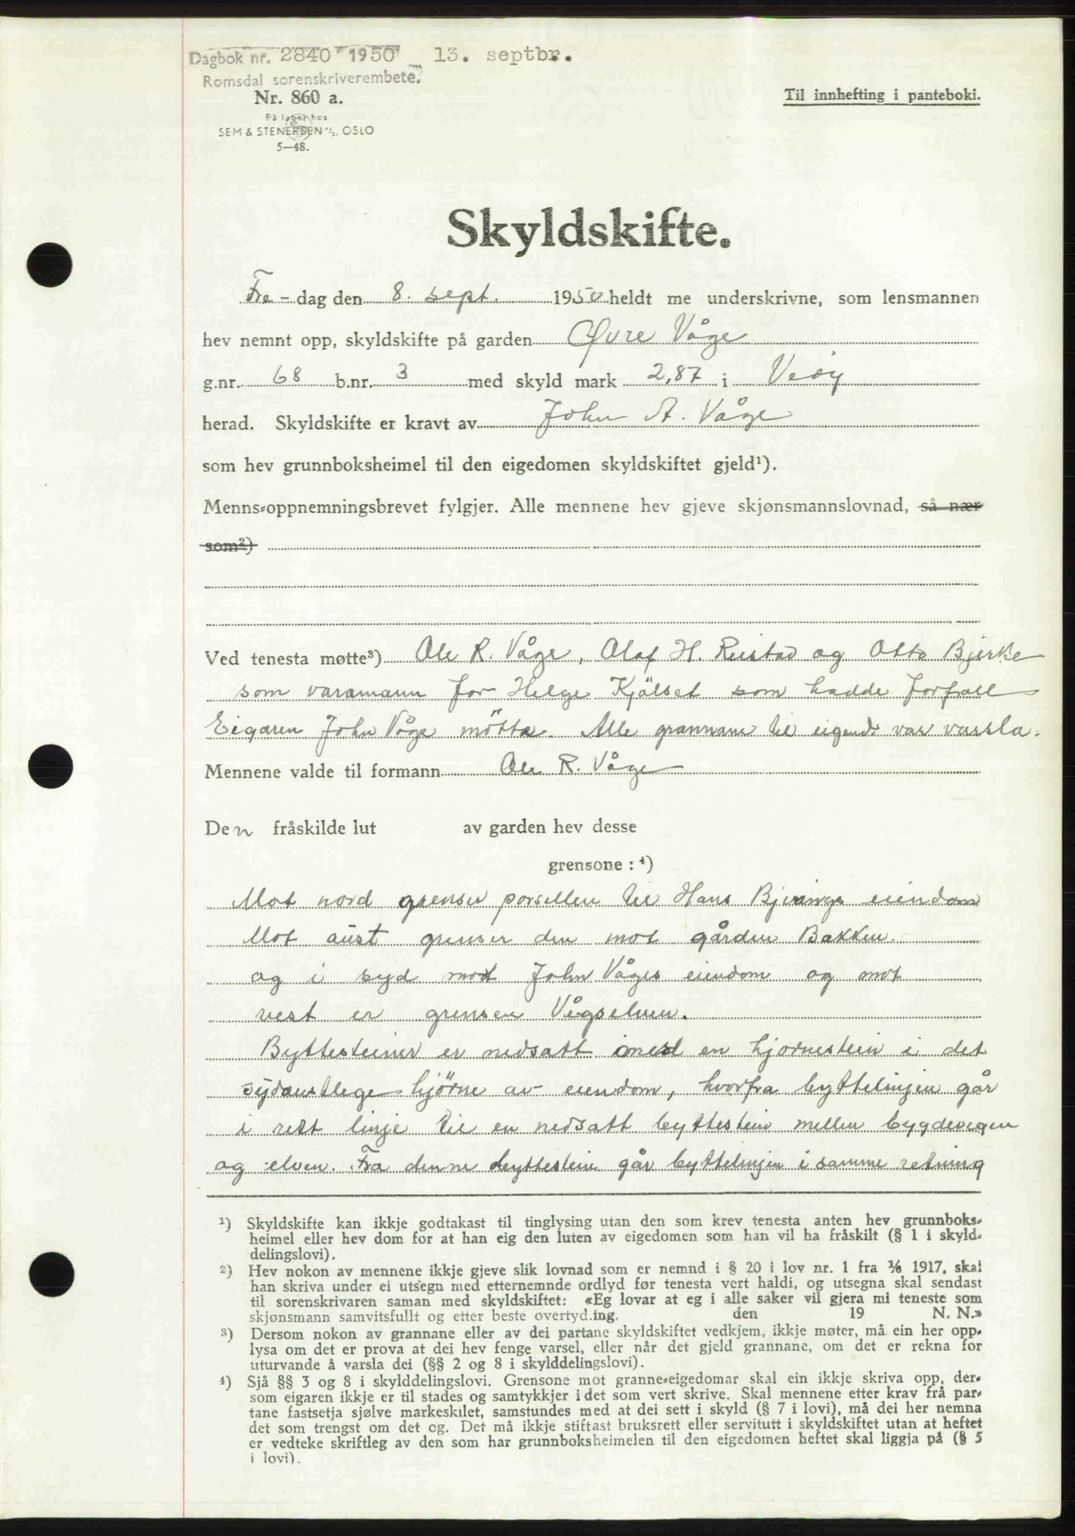 Dagbok nr. 2840 1950 13. septbr.
Romsdal sorenskriverembete.
Nr. 860 a.
Til innhefting i panteboki.
På lager hos
SEM & STENERSEN A/S, OSLO
5—48.
Skyldskifte.
Fre- dag den 8. sept. 1950 heldt me underskrivne, som lensmannen
hev nemnt opp, skyldskifte på garden Øvre Våge
g.nr. 68 b.nr. 3 med skyld mark 2,87 i Veøy
herad. Skyldskifte er kravt av John A. Våge
som hev grunnboksheimel til den eigedomen skyldskiftet gjeld¹).
Menns-oppnemningsbrevet fylgjer. Alle mennene hev gjeve skjønsmannslovnad, så nær
som²)
Ved tenesta møtte³) Ole R. Våge, Olaf H. Reistad og Otto Bjerke
som varamann for Helge Kjølset som hadde forfall
Eigaren John Våge møtta. Alle grannane til eigend. var varsla.
Mennene valde til formann Ole R. Våge
Den fråskilde lut av garden hev desse
grensone : ⁴)
Mot nord grenser porsellen til Hans Bjerings eiendom
Mot aust grenser den mot gården Bakken.
og i syd mot John Våges eiendom og mot
vest er grensen Vågselven.
Byttesteiner er nedsatt med en hjørnestein i det
sydaustlege hjørne av eiendom, hvorfra byttelinjen går
i rett linje til en nedsatt byttestein mellem bygdevegen
og elven. Fra denne byttestein går byttelinjen i samme retning
¹) Skyldskifte kan ikkje godtakast til tinglysing utan den som krev tenesta anten hev grunnboks-
heimel eller hev dom for at han eig den luten av eigedomen som han vil ha fråskilt (§ 1 i skyld-
delingslovi).
²) Hev nokon av mennene ikkje gjeve slik lovnad som er nemnd i § 20 i lov nr. 1 fra 1/6 1917, skal
han skriva under ei utsegn med etternemnde ordlyd før tenesta vert haldi, og utsegna skal sendast
til sorenskrivaren saman med skyldskiftet: «Eg lovar at eg i alle saker vil gjera mi teneste som
skjønsmann samvitsfullt og etter beste overtyding. den 19 N. N.»
³) Dersom nokon av grannane eller av dei partane skyldskiftet vedkjem, ikkje møter, må ein her opp-
lysa om det er prova at dei hev fenge varsel, eller når det gjeld grannane, om det er rekna for
uturvande å varsla dei (§§ 2 og 8 i skylddelingslovi).
⁴) Sjå §§ 3 og 8 i skylddelingslovi. Grensone mot granne-eigedomar skal ein ikkje skriva opp, der-
som eigaren ikkje er til stades og samtykkjer i det som vert skrive. Skal mennene etter krav frå par-
tane fastsetja sjølve markeskilet, samstundes med at dei sett i skyld (§ 7 i lovi), må dei her nemna
det som trengst om det og. Det må ikkje stiftast bruksrett eller servitutt i skyldskiftet utan at heftet
er vedteke skriftleg av den som har grunnboksheimelen til den eigedomen heftet skal liggja på (§ 5
i lovi).